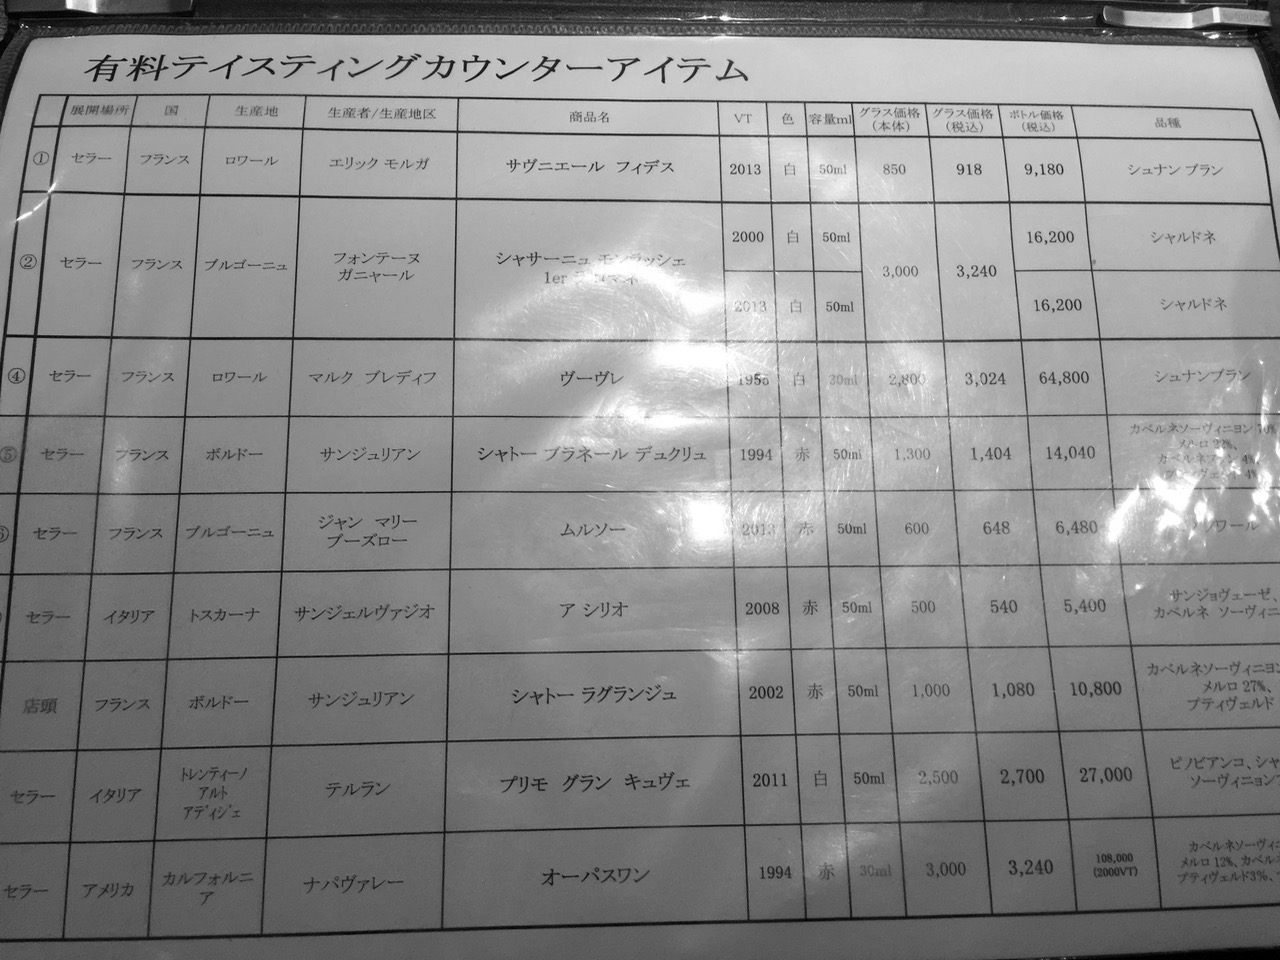 有料テイスティングカウンターアイテム
展開場所 国 生産地 生産者/生産地区 商品名 VT 色 容量ml グラス価格(本体) グラス価格(税込) ボトル価格(税込) 品種
① セラー フランス ロワール エリック モルガ サヴニエール フィデス 2013 白 50ml 850 918 9,180 シュナン ブラン
② セラー フランス ブルゴーニュ フォンテーヌ ガニャール シャサーニュ モンラッシェ 1er 2000 白 50ml 3,000 3,240 16,200 シャルドネ
2013 白 50ml 16,200 シャルドネ
④ セラー フランス ロワール マルク ブレディフ ヴーヴレ 白 30ml 2,800 3,024 64,800 シュナンブラン
⑤ セラー フランス ボルドー サンジュリアン シャトー ブラネール デュクリュ 1994 赤 50ml 1,300 1,404 14,040 カベルネソーヴィニヨン
メルロ
セラー フランス ブルゴーニュ ジャン マリー ブーズロー ムルソー 2013 赤 50ml 600 648 6,480
セラー イタリア トスカーナ サンジェルヴァジオ ア シリオ 2008 赤 50ml 500 540 5,400 サンジョヴェーゼ、
カベルネ ソーヴィニ
店頭 フランス ボルドー サンジュリアン シャトー ラグランジュ 2002 赤 50ml 1,000 1,080 10,800 カベルネソーヴィニヨン
メルロ 27%、
プティヴェルド
セラー イタリア トレンティーノ アルト アディジェ テルラン プリモ グラン キュヴェ 2011 白 50ml 2,500 2,700 27,000 ピノビアンコ、シャ
ソーヴィニヨン
セラー アメリカ カルフォルニア ナパヴァレー オーパスワン 1994 赤 30ml 3,000 3,240 108,000 (2000VT) カベルネソーヴィニ
メルロ 12%、カベル
プティヴェルド3%、